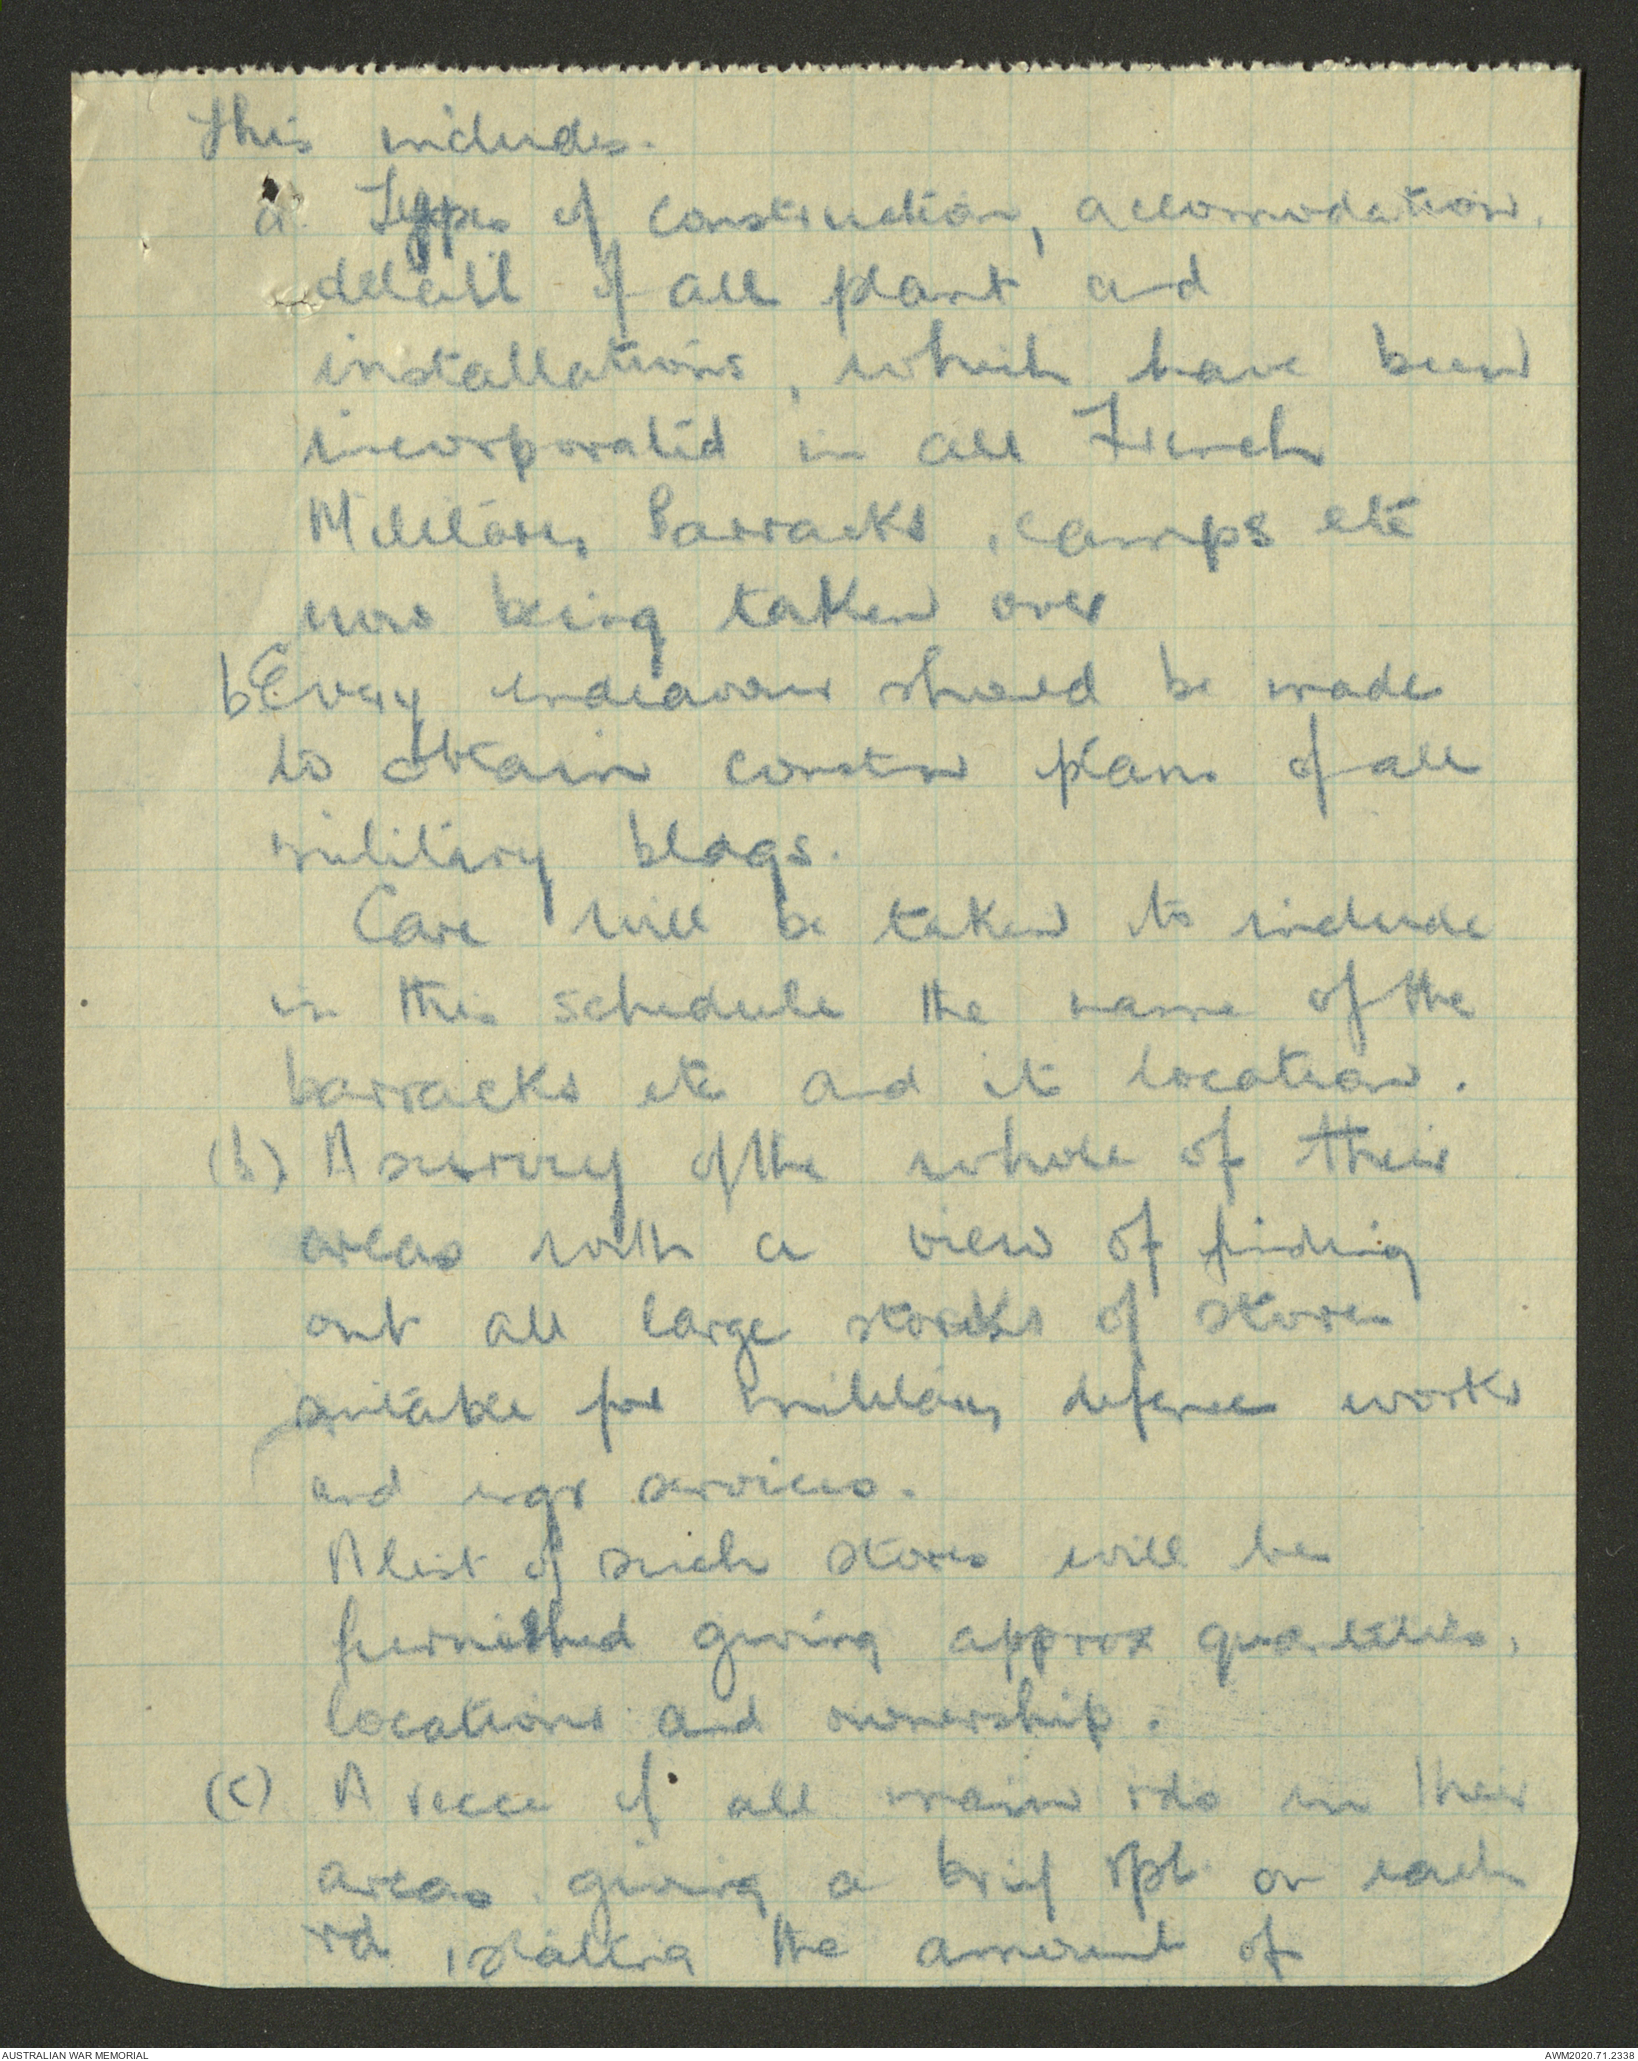 This includes.
a. Types of construction, accomodation,
detail of all plant and
installations, which have been
incorporated in all French
Military Barracks, camps etc
now being taken over
b. Every endeavour should be made
to obtain constrn plans of all
military bldgs.
Care will be taken to include
in this schedule the name of the
barracks etc and its location.
(b) A survey of the whole of their
areas with a view of finding
out all large stocks of stores
suitable for military defence works
and engr services.
A list of such stores will be
furnished giving approx quantities,
locations and ownership.
(c) A recce of all main rds in their
areas giving a brief rpt on each
rd, stating the amount of
AUSTRALIAN WAR MEMORIAL
AWM2020.71.2338